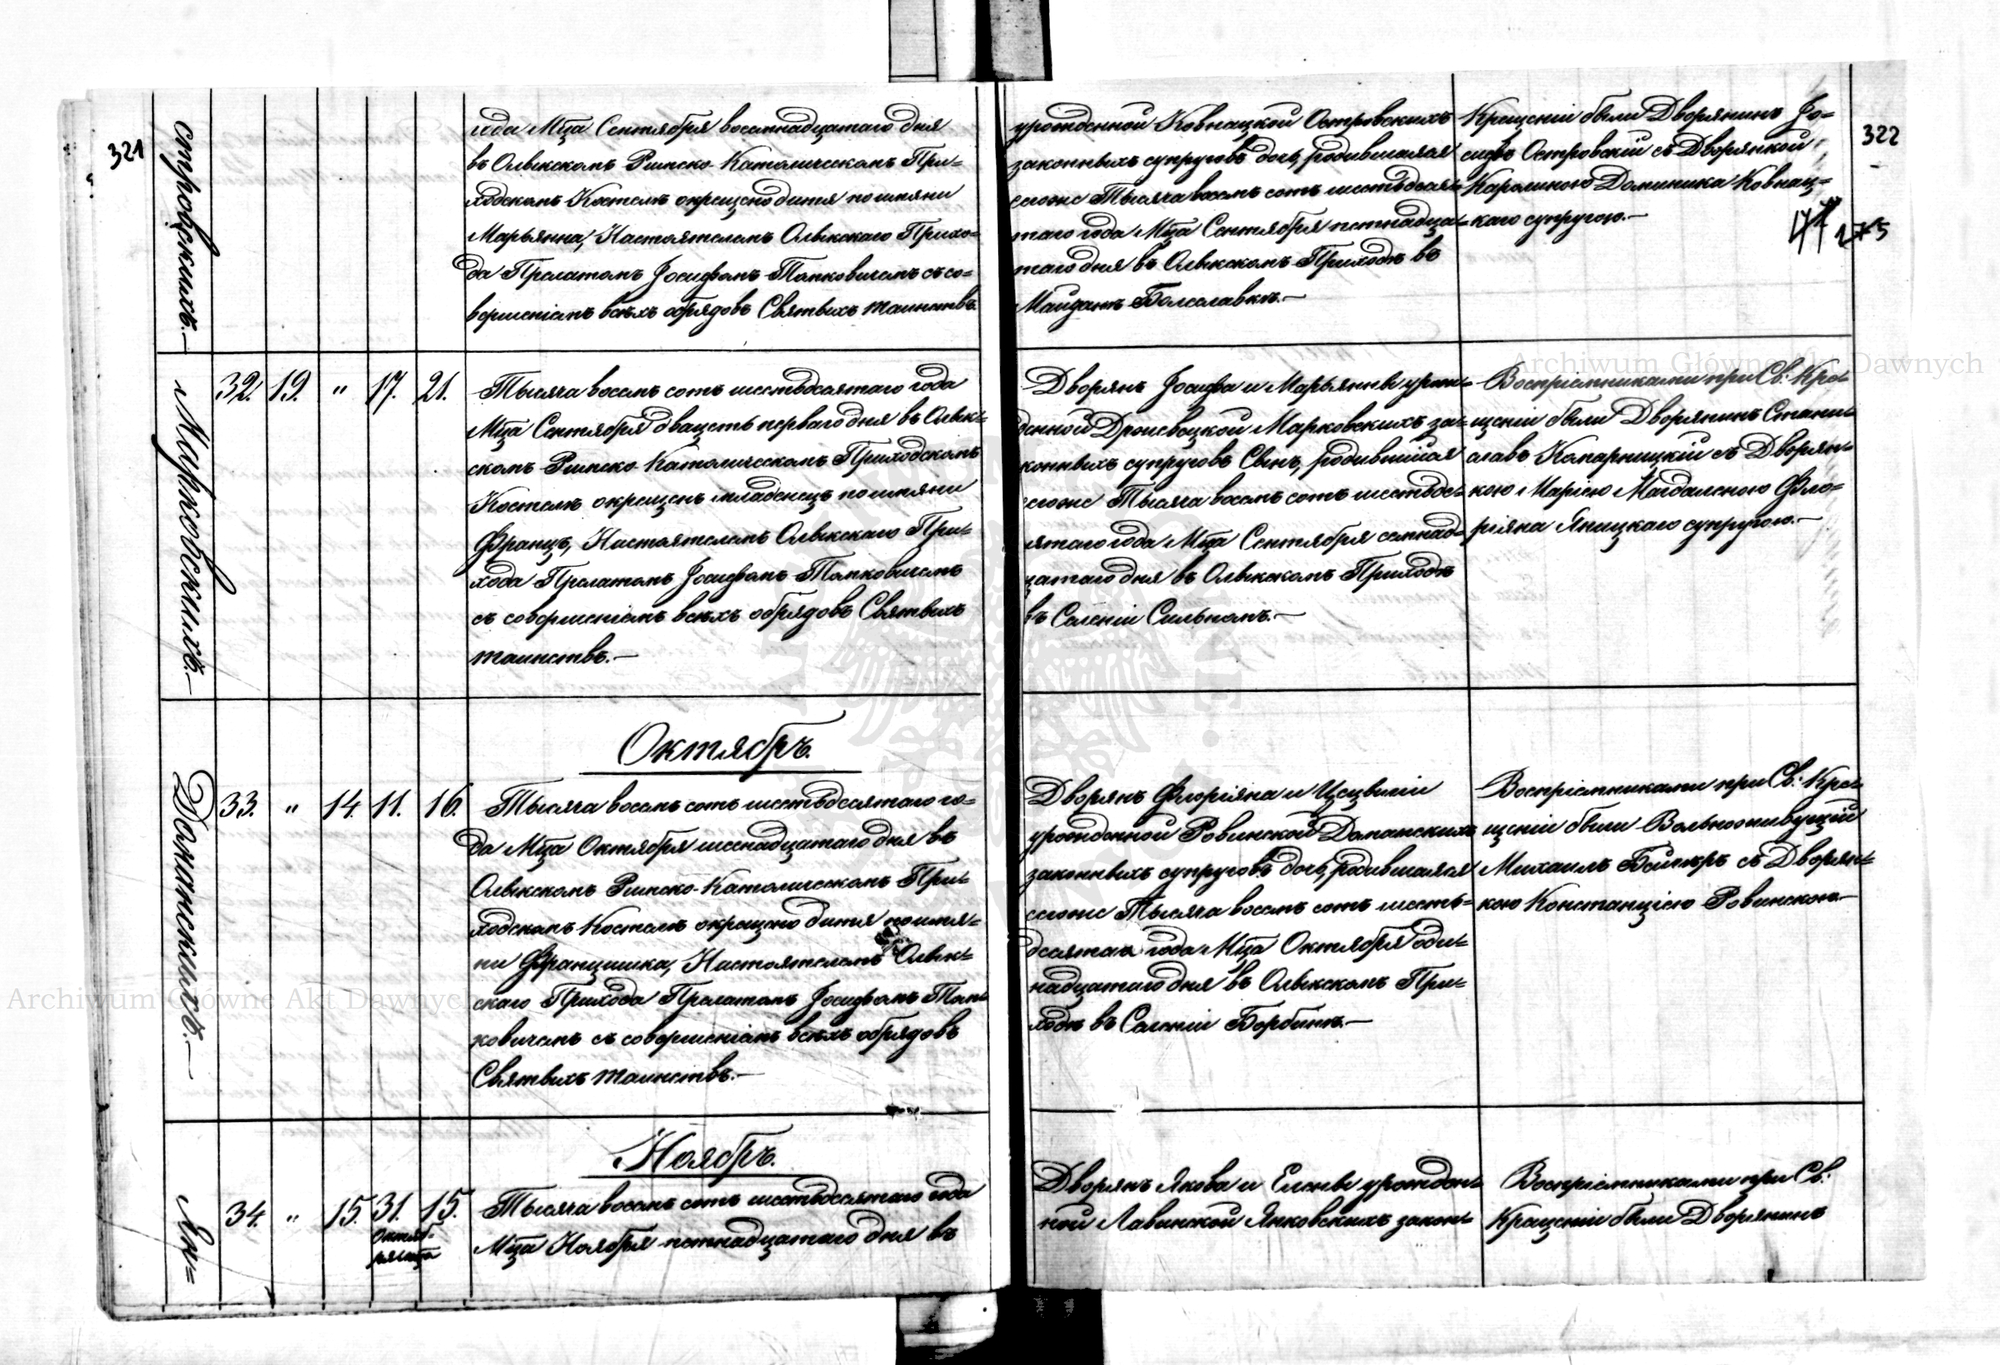 321
стровскихъ.—
года Мца Сентября восемнадцатаго дня
въ Олыкскомъ Римско-Католическомъ При-
ходскомъ Костелѣ окрещено дитя по имяни
Марьянна, Настоятелемъ Олыкскаго Прихо-
да Прелатомъ Іосифомъ Томковичемъ съ со-
вершеніемъ всѣхъ обрядовъ Святыхъ таинствъ.
урожденной Ковнацкой Островскихъ
законныхъ супруговъ дочь, родившаяся
сего же Тысяча восемъ сотъ шестьдеся-
таго года Мца Сентября петнадца-
таго дня въ Олыкскомъ Приходѣ въ
Майданѣ Болеславкѣ.—
Крещеніи были Дворянинъ Іо-
сифъ Островскій съ Дворянкой
Каролиною Доминика Ковнац-
каго супругою.—
322
275
Марковскихъ.—
32. 19. " 17. 21.
Тысяча восемъ сотъ шестьдесятаго года
Мца Сентября двацеть перваго дня въ Олык-
скомъ Римско-Католическомъ Приходскомъ
Костелѣ окрещенъ младенецъ по имяни
Францъ, Настоятелемъ Олыкскаго При-
хода Прелатомъ Іосифомъ Томковичемъ
съ совершеніемъ всѣхъ обрядовъ Святыхъ
таинствъ.—
Дворянъ Іосифа и Марьянны урож-
денной Марковскихъ за-
конныхъ супруговъ Сынъ, родившійся
сего же Тысяча восемъ сотъ шестьдес-
ятаго года Мца Сентября семнад-
цатаго дня въ Олыкскомъ Приходѣ
въ Селеніи Сильномъ.—
Воспріемниками при Св: Кре-
щеніи были Дворянинъ Стани-
славъ Копарницкій съ Дворян-
кою Маріею Магдаленою Фло-
ріяна Яницкаго супругою.—
Октябрь.
Доманскихъ.—
33. " 14. 11. 16.
Тысяча восемъ сотъ шестьдесятаго го-
да Мца Октября шеснадцатаго дня въ
Олыкскомъ Римско-Католическомъ При-
ходскомъ Костелѣ окрещено дитя по имя-
ни Францишка, Настоятелемъ Олык-
скаго Прихода Прелатомъ Іосифомъ Том-
ковичемъ съ совершеніемъ всѣхъ обрядовъ
Святыхъ таинствъ.—
Дворянъ Флоріяна и Цециліи
урожденной Ровинской Доманскихъ
законныхъ супруговъ дочь, родившаяся
сего же Тысяча восемъ сотъ шесть-
десятаго года Мца Октября оди-
надцатаго дня въ Олыкскомъ При-
ходѣ въ Селеніи Борбинѣ.—
Воспріемниками при Св: Кре-
щеніи были Вольноживущій
Михаилъ съ Дворян-
кою Констанціею Ровинскою.—
Ноябрь.
Ян-
34. " 15. 31. 15.
Октяб-
ря мца
Тысяча восемъ сотъ шестьдесятаго года
Мца Ноября петнадцатаго дня въ
Дворянъ Якова и Елены урожден-
ной Лавинской Янковскихъ закон-
Воспріемниками при Св:
Крещеніи были Дворянинъ
Archiwum Główne Akt Dawnych
Archiwum Główne Akt Dawnych